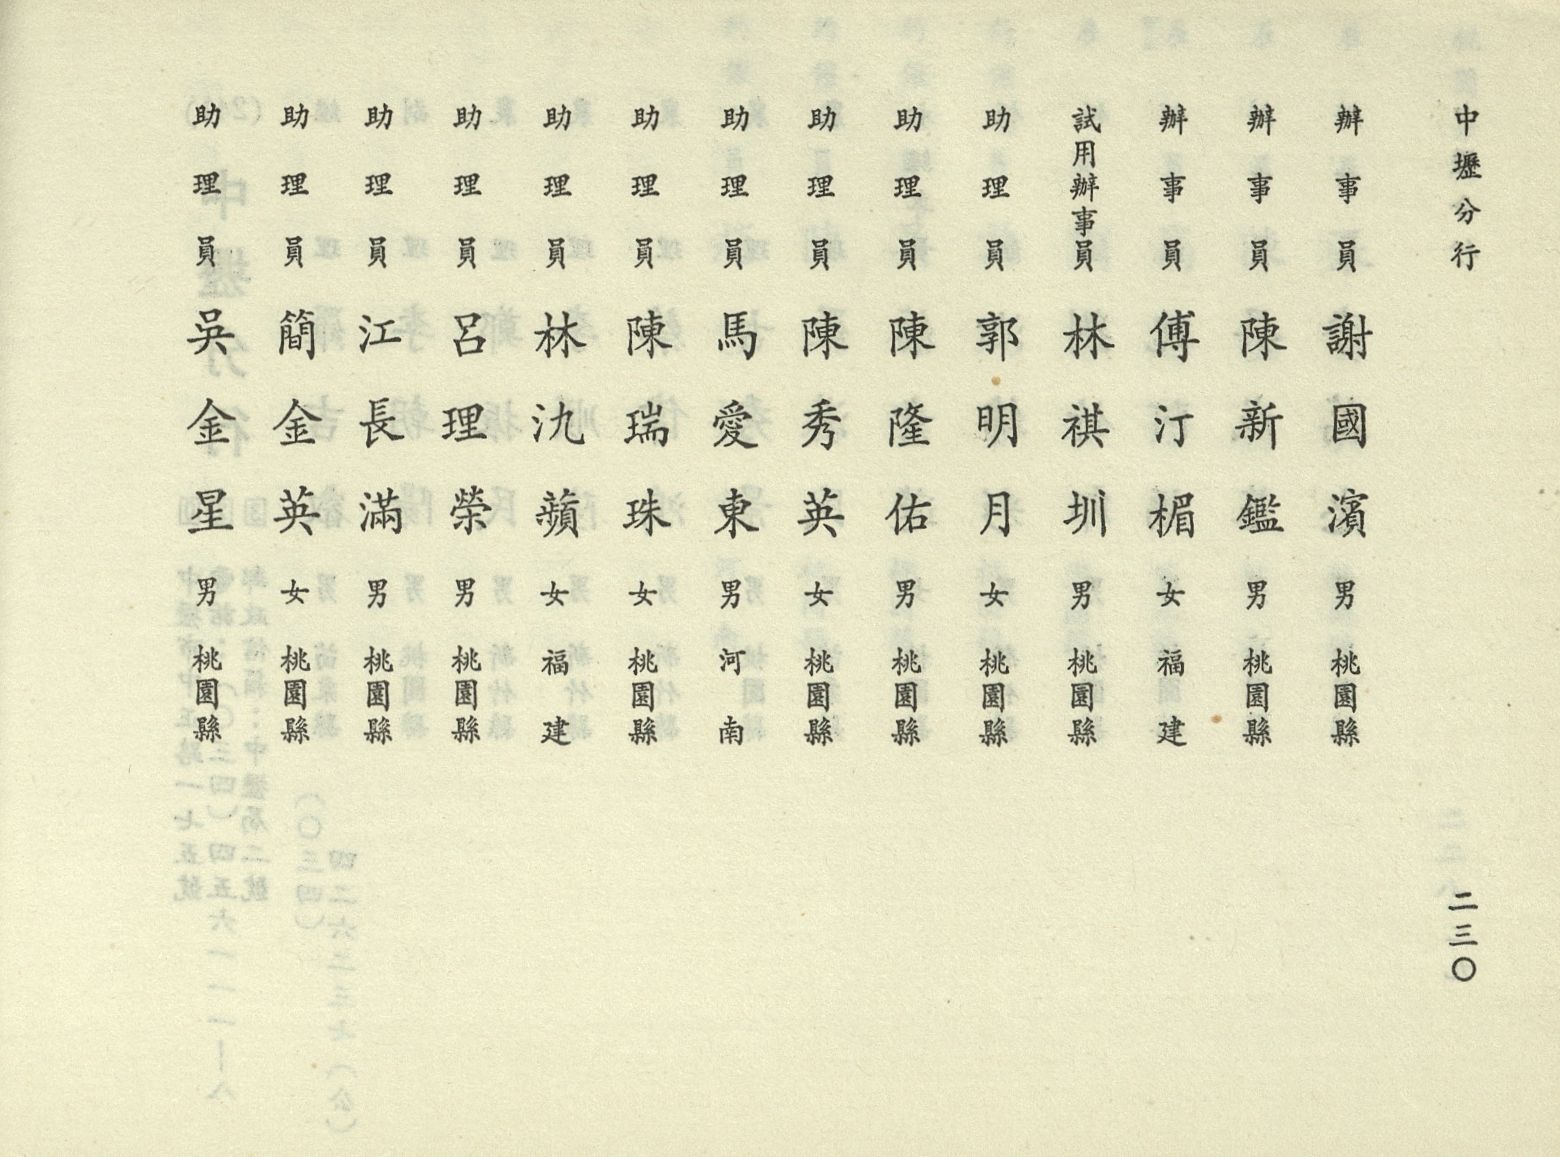 中壢分行 二三〇
辦事員 謝國濱 男 桃園縣
辦事員 陳新鑑 男 桃園縣
辦事員 傅汀楣 女 福建
試用辦事員 林祺圳 男 桃園縣
助理員 郭明月 女 桃園縣
助理員 陳隆佑 男 桃園縣
助理員 陳秀英 女 桃園縣
助理員 馬愛東 男 河南
助理員 陳瑞珠 女 桃園縣
助理員 林氿蘋 女 福建
助理員 呂理榮 男 桃園縣
助理員 江長滿 男 桃園縣
助理員 簡金英 女 桃園縣
助理員 吳金星 男 桃園縣